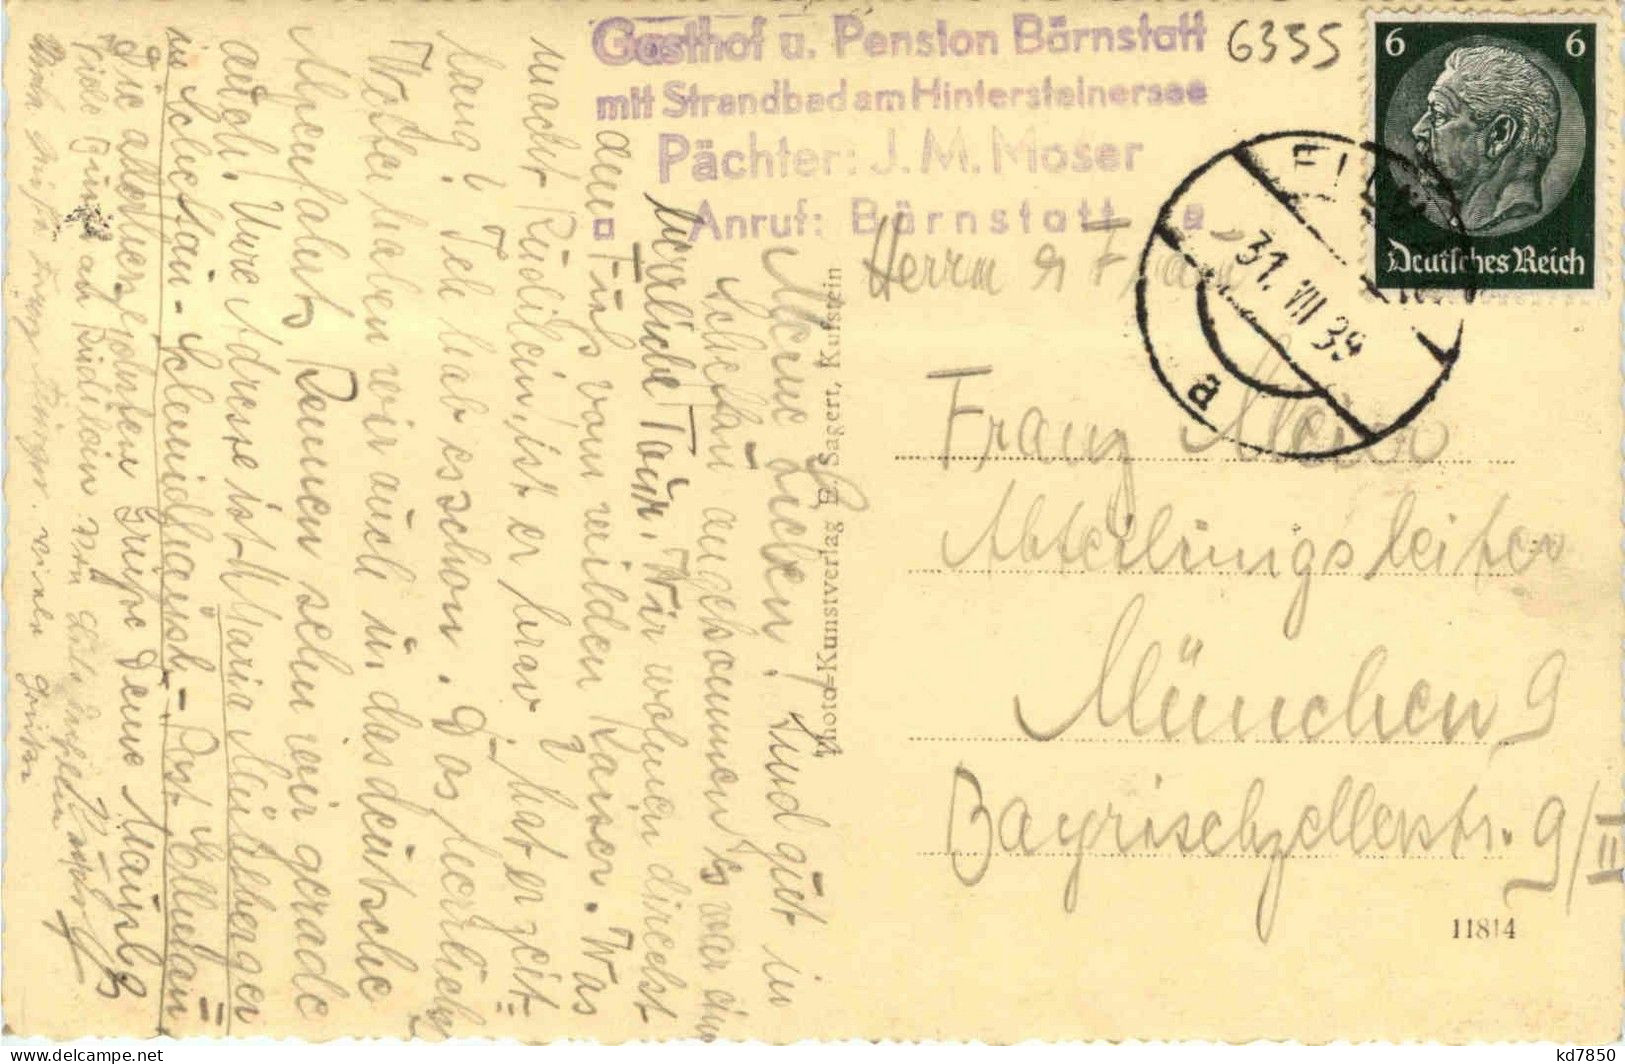 Gasthof u. Pension Bärnstatt
mit Strandbad am Hintersteinersee
Pächter: J. M. Moser
Anruf: Bärnstatt
6355
6 6
Deutsches Reich
31. VII 39
a
Herrn & Frau
Franz
Abteilungsleiter
München 9
Bayrischzellerstr. 9/III
11814
Photo=Kunstverlag B. Sagert, Kufstein
Meine Lieben! Sind gut in
Scheffau angekommen es war eine
herrliche Tour. Wir wohnen direckt
am Fuß vom wilden Kaiser. Was
macht Rudilein, ist er brav, hat er Zeit=
lang? Ich hab es schon. Das herrliche
Wetter haben wir auch u. das deutsche
Alpenfahrts Rennen sehn wir gerade
auch. Unre Adresse ist Maria
in Scheffau - Schmidhäusl - Post Ellmau
Die allerherzlichsten Grüße Deine
Viele an Rudilein von
kd7850